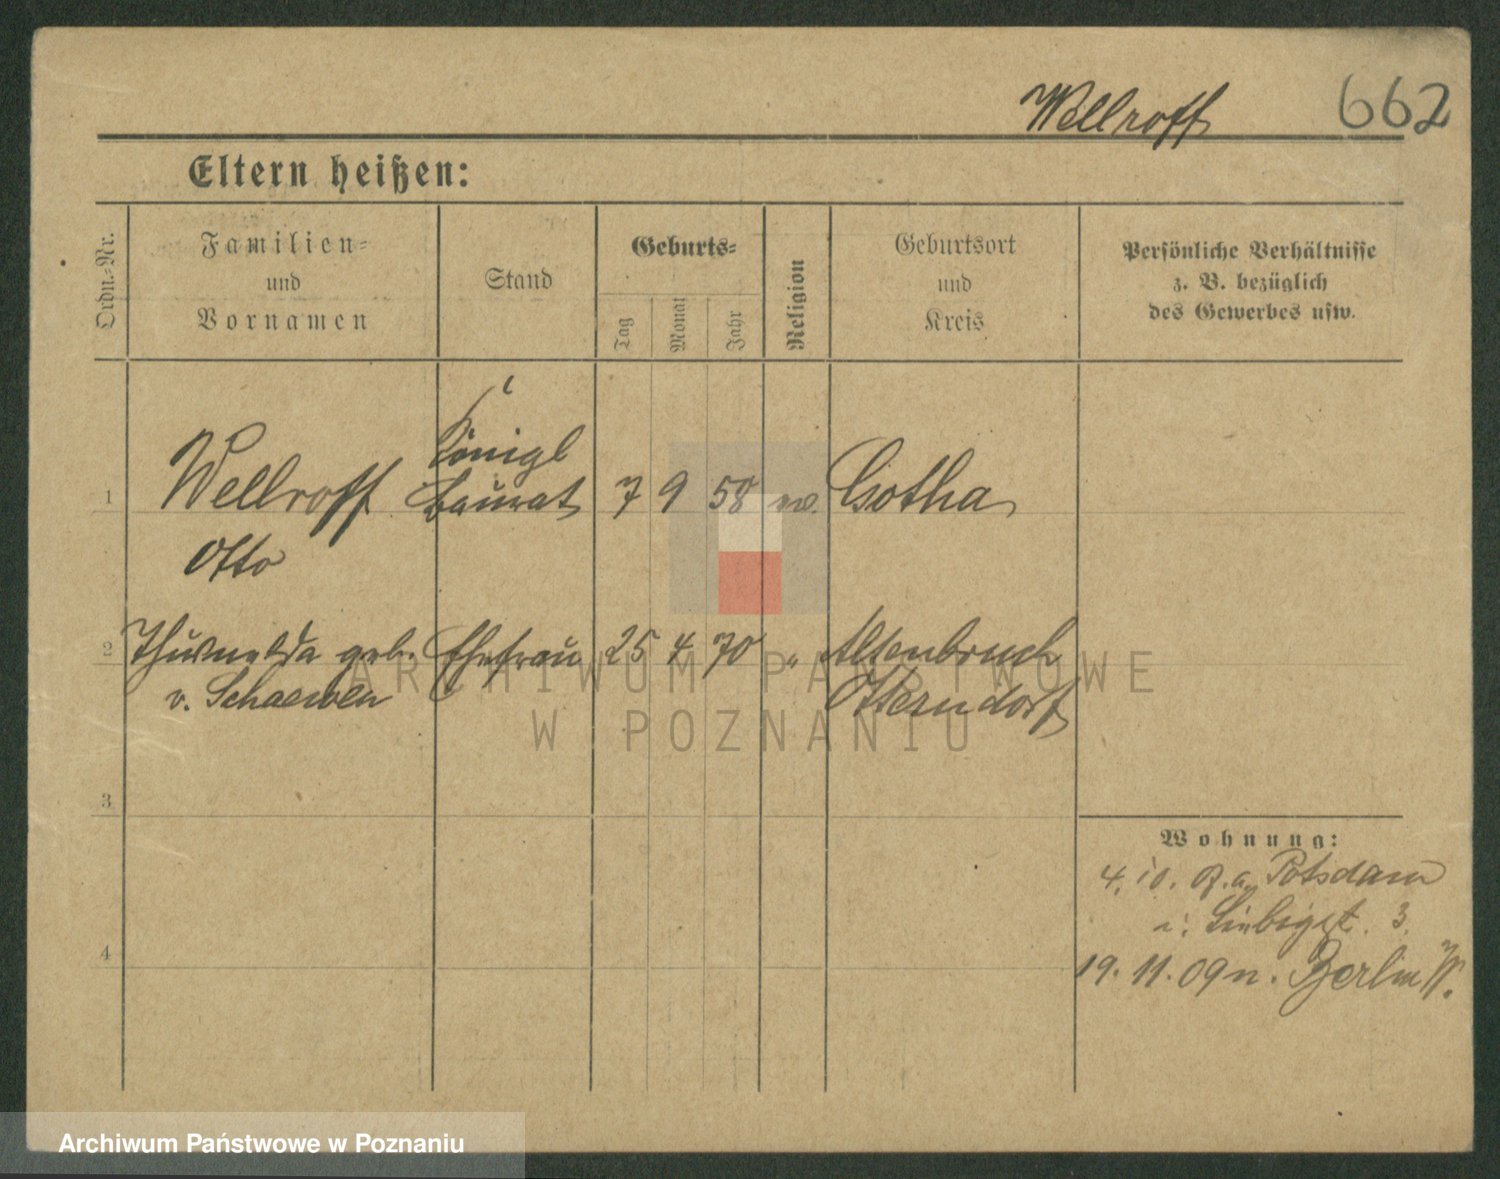 Wellroff 662
Eltern heißen:
Ordn.-Nr.
Familien-
und
Vornamen
Stand
Geburts-
Tag
Monat
Jahr
Religion
Geburtsort
und
Kreis
Persönliche Verhältnisse
z. B. bezüglich
des Gewerbes usw.
1 Wellroff Königl Baurat 7 9 58 ev. Gotha
Otto
2 Thusnelda geb. Ehefrau 25 4 70 " Altenbruch
v. Schaewen Otterndorf
3
4
Wohnung:
4. 10. Potsdam
Liebigst. 3.
19. 11. 09 n. Berlin W.
ARCHIWUM PAŃSTWOWE
W POZNANIU
Archiwum Państwowe w Poznaniu